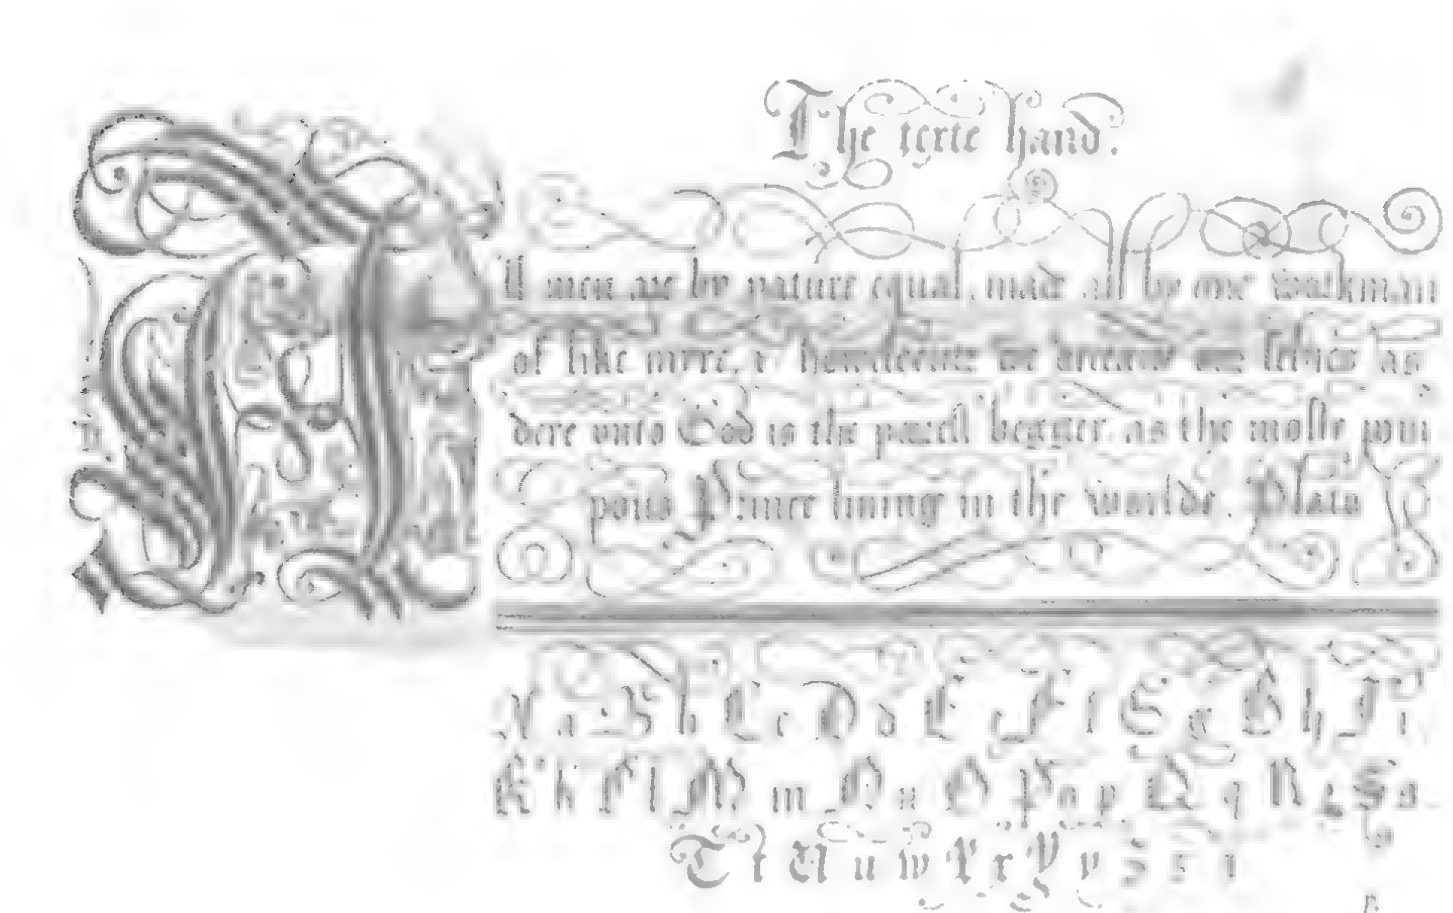 The texte hand.
All men are by nature equal, made all by one workman
of like myre, & howsoeuer we deceiue our selues as
dere vnto God is the poorest begger, as the moste pom
pous Prince liuing in the worlde. Plato
A a B b C c D d E e F f G g H h I i
K k L l M m N n O o P p Q q R r S s
T t U u w X x Y y Z z